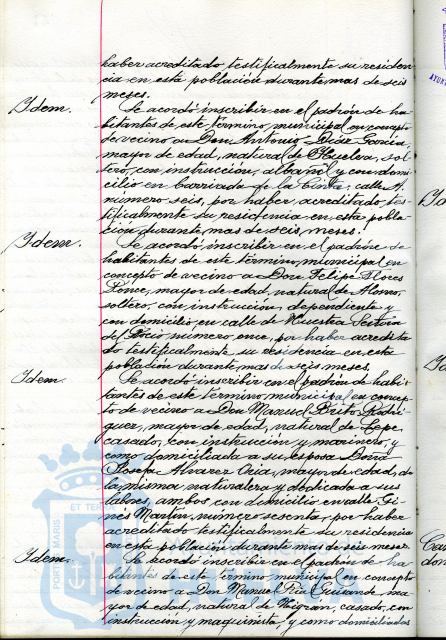 haber acreditado testificalmente su residen
cia en esta población durante mas de seis
meses.
Idem.
Se acordó inscribir en el padrón de ha
bitantes de este término municipal en concepto
de vecino a Don Antonio Díaz García,
mayor de edad, natural de Huelva, sol
tero, con instrucción, albañil y con domi
cilio en barriada de la Cinta, calle A.
número seis, por haber acreditado tes-
tificalmente su residencia en esta pobla-
ción durante mas de seis meses.
Idem.
Se acordó inscribir en el padrón de
habitantes de este término municipal en
concepto de vecino a Don Felipe Flores
Ponce, mayor de edad, natural de Alosno,
soltero, con instrucción, dependiente y
con domicilio en calle de Nuestra Señora
del Rocio, número once, por haber acredita
do testificalmente su residencia en esta
población durante mas de seis meses.
Idem.
Se acordó inscribir en el padrón de habi-
tantes de este término municipal en concep
to de vecino a Don Manuel Brito Rodrí
guez, mayor de edad, natural de Lepe,
casado, con instrucción y marinero, y
como domiciliada a su esposa Doña
Josefa Alvarez Oria, mayor de edad, de
la misma naturaleza y dedicada a sus
labores, ambos con domicilio en calle Gi-
nés Martín, número sesenta, por haber
acreditado testificalmente su residencia
en esta población durante mas de seis meses.
Idem.
Se acordó inscribir en el padrón de ha
bitantes de este término municipal en concepto
de vecino a Don Manuel ma
yor de edad, natural de Nigran, casado, con
instrucción y maquinista, y como domiciliados
PORTUS MARIS ET TERRAE